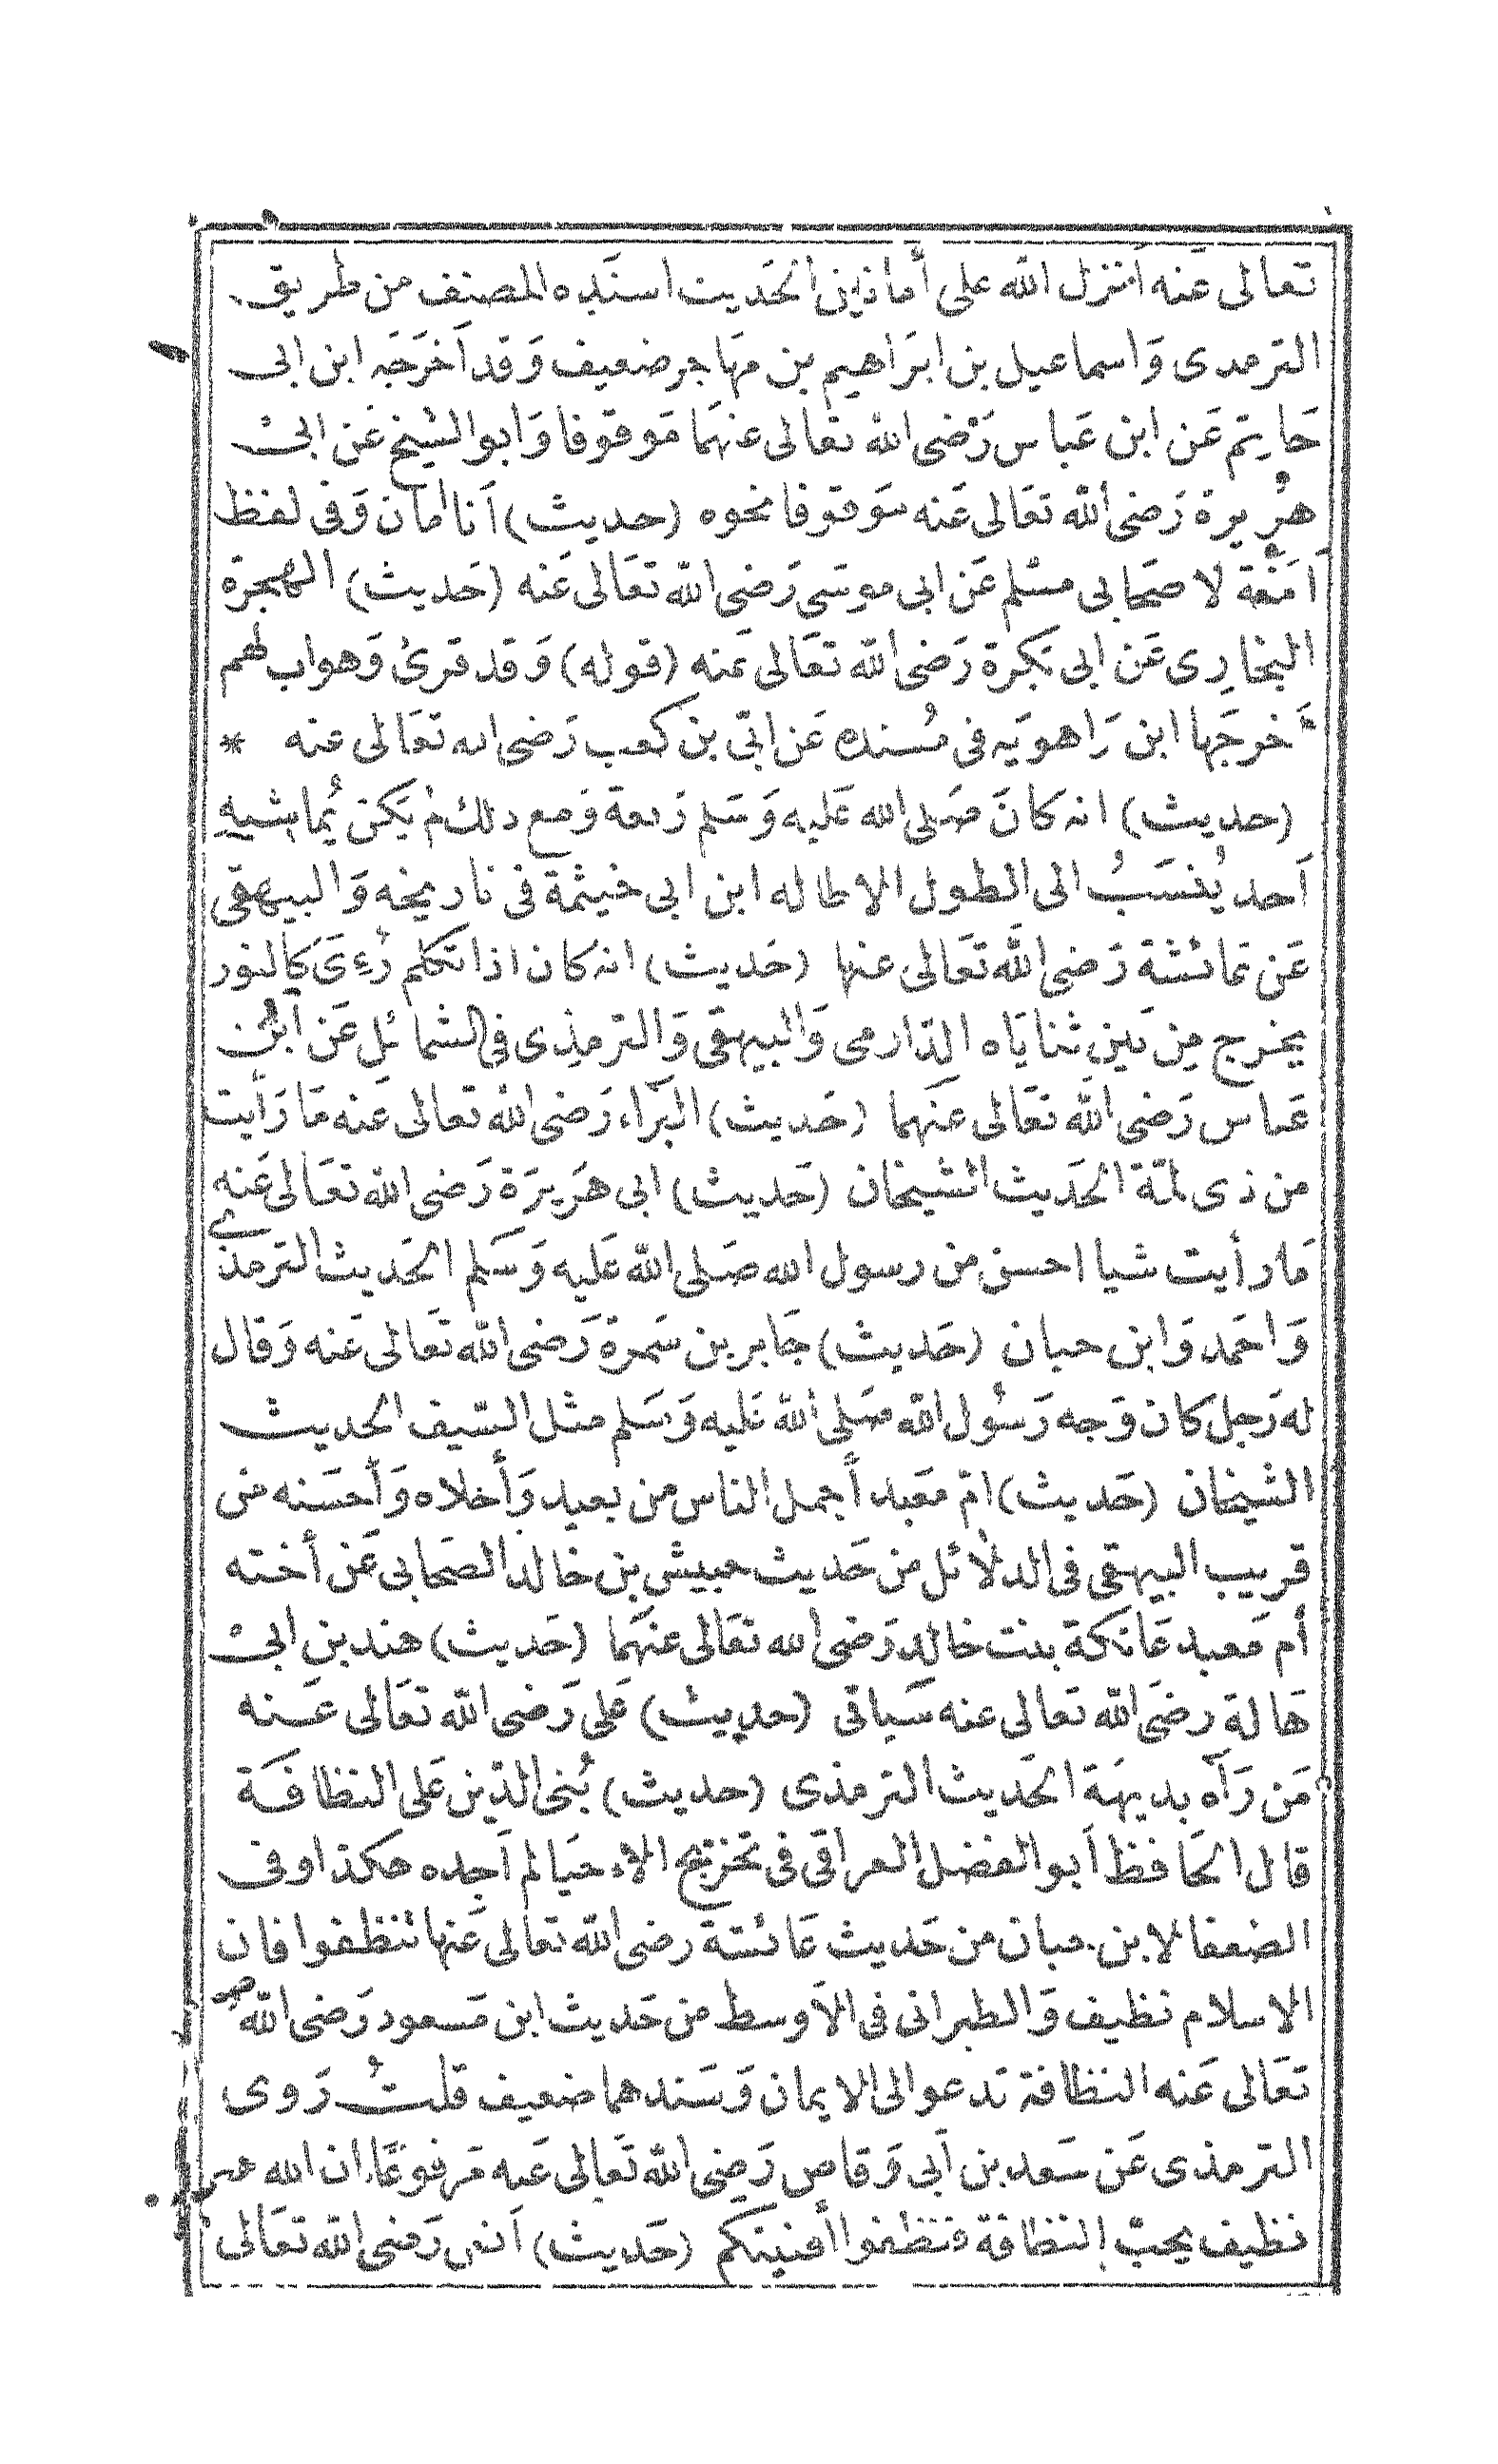 تعالى عَنه أنزل الله على أمانين الحَديث اسنَده المصنف من طريق
الترمدى وَاسماعيل بن ابرَاهيم بن مهَاجر ضعيف وَقد اَخرَجَه ابن ابى
حَاتِم عَن ابن عَباس رَضى الله تعَالى عنهمَا مَوقوفا وَابو الشيخ عَن ابى
هُريرة رَضى الله تعَالى عَنه موَقوفا نحوه (حديث) اَنا اَمان وَفى لفظ
اَمَنَة لاصحَابى مسْلم عَن ابى موسَى رَضى الله تعَالى عَنه (حَديث) الهجرَة
البخارِى عَن ابى بَكرة رَضى الله تعَالى عَنه (قوله) وَقد قرئ وَهواب لهم
اَخرجَها ابن رَاهويَه فى مُسنده عَن ابّى بن كعب رَضى الله تعَالى عنه *
(حديث) انه كانَ صَلى الله عَليه وَسَلم رَبعة وَمع ذلك لم يَكن يُماشيهِ
اَحد يُنسَبُ الى الطول الا طاله ابن ابى خيثمة فى تاريخه وَالبيهقى
عَن عَائشة رَضى الله تعَالى عنها (حَديث) انه كان اذا تكلم رُءِىَ كالنور
يخرج مِن بَين ثنايَاه الدّارمى وَالبيهقى وَالترمِذِى فى الشمائل عَن ابن
عَباس رَضى الله تعَالى عَنهما (حَديث) البرَاء رَضى الله تعالى عَنه مَا رَأيت
من ذى لمّة الحَديث الشيخان (حَديث) ابى هرَيرَة رَضى الله تعَالى عَنه
مَا رأيت شيا احسن من رسول الله صَلى الله عَليه وَسَلم الحَديث الترمذى
وَاحمد وَابن حبان (حَديث) جَابر بن سَمرة رَضى الله تعَالى عَنه وَقال
له رَجل كان وَجه رَسُول الله صَلى الله عَليه وَسَلم مثل السّيف الحديث
الشيخان (حَديث) امّ مَعَبد أجمل الناس من بعيد وَأحلاه وَأحسَنه من
قريب البيهقى فى الدلائل من حَديث حبيش بن خالد الصحَابى عَن أخته
أم مَعبد عَاتكة بنت خالد رَضى الله تعَالى عنهَما (حَديث) هند بن ابى
هَالة رضَى الله تعالى عنه سَياتى (حديث) عَلى رَضى الله تعَالى عَنه
مَن رَآه بديهَة الحَديث الترمذى (حديث) بُنى الدّين عَلى النظافَة
قال الحَافظ اَبو الفضل العراقى فى تخريج الاحيَا لم اَجده هكذا وفى
الضعفا لابن حبان من حَديث عَائشة رضى الله تعالى عَنها تنظفوا فان
الاسلام نظيف وَالطبرانى فى الاَوسط من حَديث ابن مَسعود رَضى الله
تعَالى عَنه النظافة تدعو الى الايمان وَسَندهما ضعيف قلتُ رَوى
الترمذى عَن سَعد بن اَبى وَقاص رَضى الله تَعالى عَنه مَرفوعًا ان الله
نظيف يحبّ النظافة فتظفوا أفنيتكم (حَديث) اَنس رَضى الله تعَالى